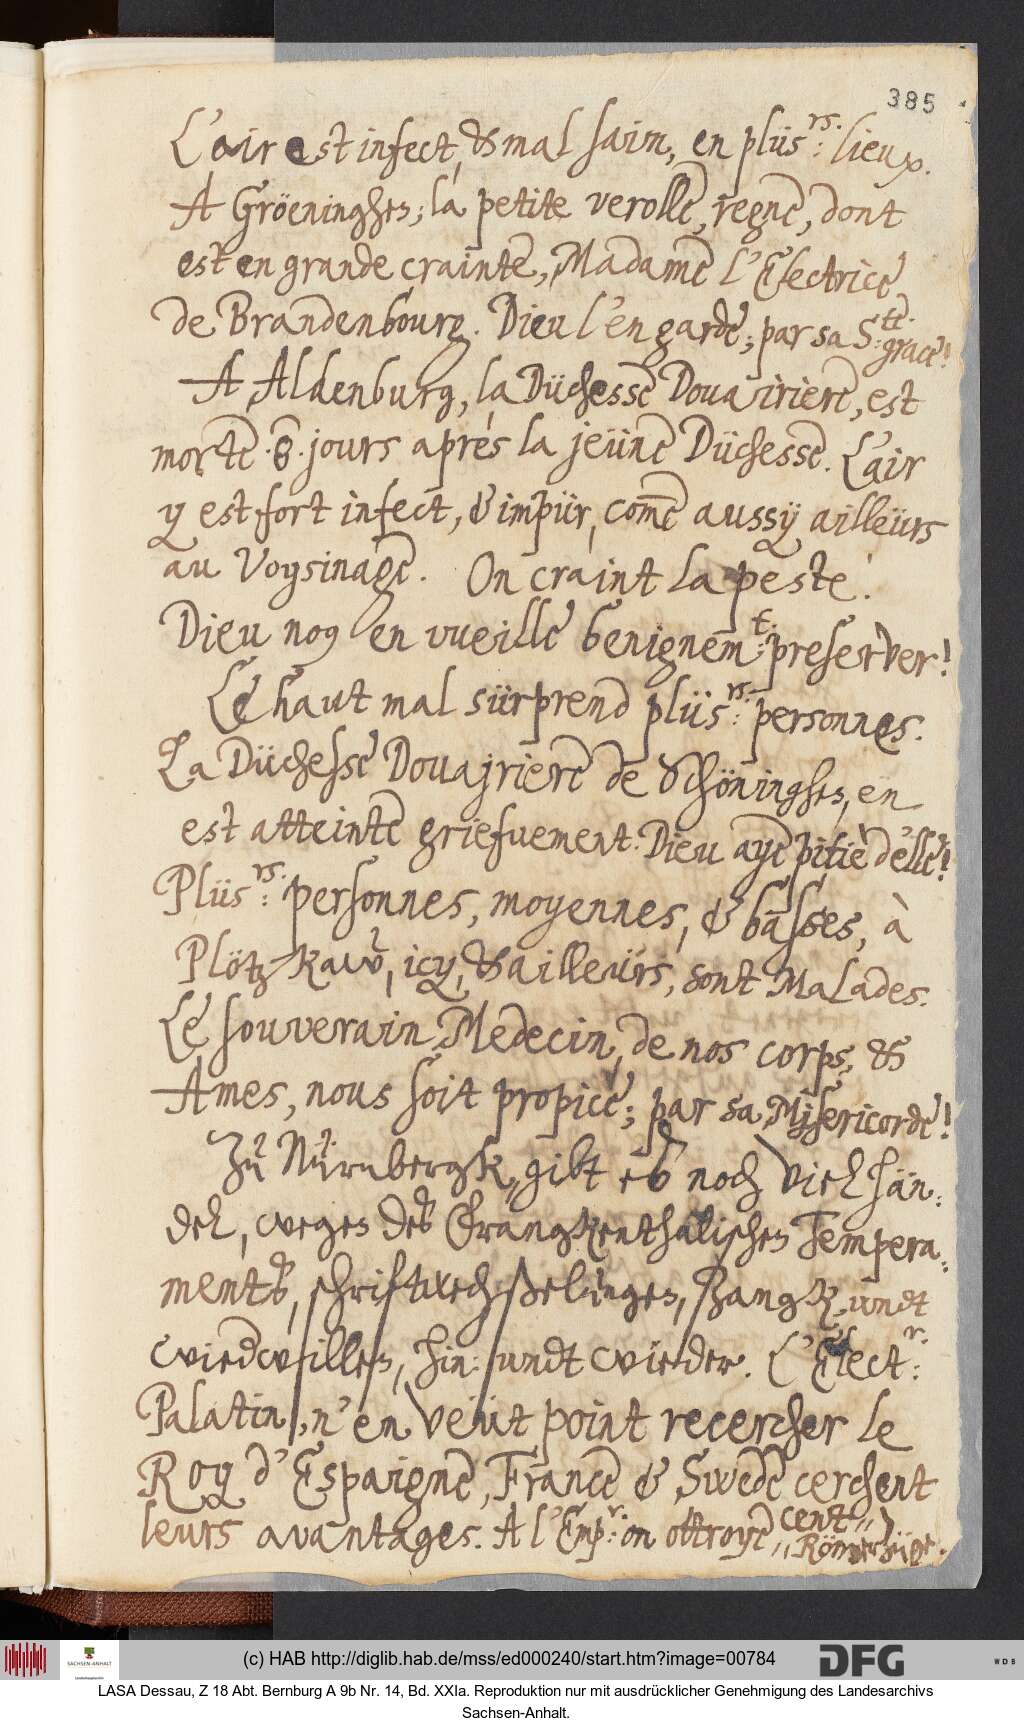 385
L'air est infect, & mal sain, en plüs:rs. lieux.
A Gröeninghen; la petite verolle, regne, dont
est en grande crainte, Madame l'Electrice
de Brandenbourg. Dieu l'en garde; par sa S:tt. grace!
A Aldenburg, la Düchesse Douairiere, est
morte .8. jours aprés la jeüne Düchesse. L'air
y est fort infect, & impür, come aussÿ ailleürs
au Voysinage. On craint la peste!
Dieu nous en vueille benignem:t. preserver!
Le haut mal sürprend plüs:rs. personnes.
La Düchesse Douajriere de Schöninghen, en
est atteinte griefvement. Dieu aye pitiè d'elle!
Plüs:rs. personnes, moyennes, & basses, à
Plötzkaw, icy, & ailleürs, sont Malades.
Le souverain Medecin, de nos corps, &
Ames, nous soit propice; par sa Misericorde!
Zu Nürnbergk, gibt es noch viel hän:
del, wegen des Frangkenthalischen Tempera:
ments, schriftwechßelungen, Zangk, undt
wiedwillen, hin: undt wieder. L'Elect:r.
Palatin, n'en veüt point recercher le
Roy d'Espaigne, France & Swede cerchent
leurs avantages. A l'Emp:r. on ottroye cent,,
,,Römerzüge.
(c) HAB http://diglib.hab.de/mss/ed000240/start.htm?image=00784
SACHSEN-ANHALT
DFG
WDB
LASA Dessau, Z 18 Abt. Bernburg A 9b Nr. 14, Bd. XXIa. Reproduktion nur mit ausdrücklicher Genehmigung des Landesarchivs
Sachsen-Anhalt.